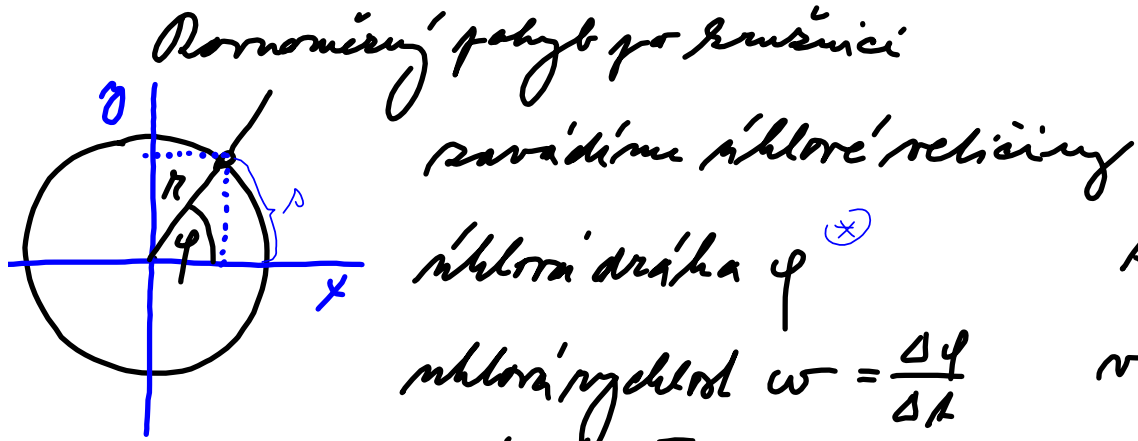 Rovnoměrný pohyb po kružnici
y
zavádíme úhlové veličiny
r
s
φ
úhlová dráha φ *
x
úhlová rychlost ω = Δφ/Δt
v